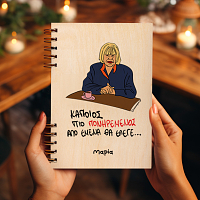 ΚΑΠΟΙΟΣ
ΠΙΟ ΠΟΝΗΡΕΜΕΝΟΣ
ΑΠΟ ΕΜΕΝΑ ΘΑ ΕΛΕΓΕ...
Μαρία